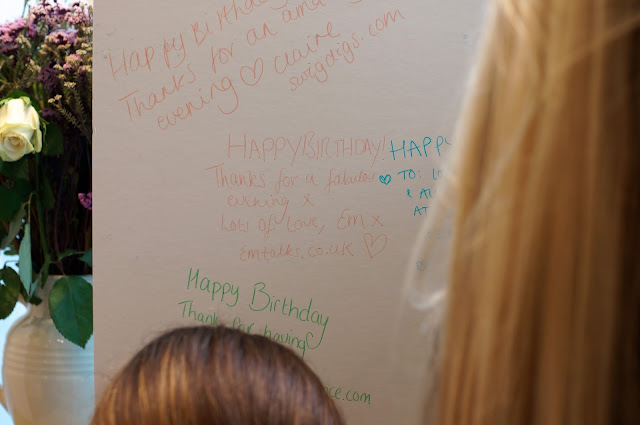 Happy Birthday
Thanks for an
evening ♡ Claire
swigdigs.com
HAPPY BIRTHDAY!
Thanks for a fabulous
evening x
Lots of love, Em x
Emtalks.co.uk ♡
HAPPY
♡ TO:
&
AT
Happy Birthday
Thanks for having
.com